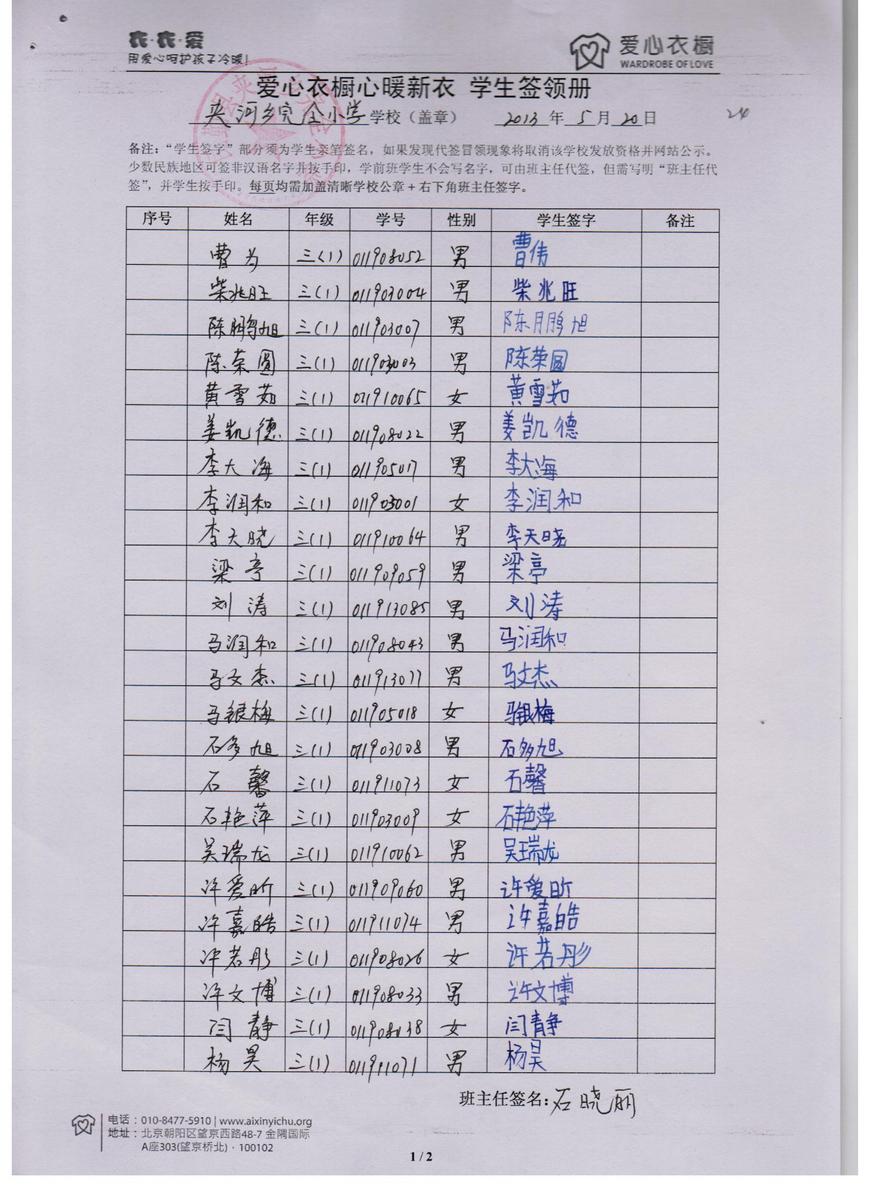 衣·衣·爱
用爱心呵护孩子冷暖!
爱心衣橱
WARDROBE OF LOVE
爱心衣橱心暖新衣 学生签领册
夹河乡完全小学学校（盖章） 2013年5月20日
24
备注：“学生签字”部分须为学生亲笔签名，如果发现代签冒领现象将取消该学校发放资格并网站公示。
少数民族地区可签非汉语名字并按手印，学前班学生不会写名字，可由班主任代签，但需写明“班主任代
签”，并学生按手印。每页均需加盖清晰学校公章+右下角班主任签字。
序号 姓名 年级 学号 性别 学生签字 备注
曹为 三(1) 011908052 男 曹伟
柴兆旺 三(1) 011903004 男 柴兆旺
陈鹏旭 三(1) 011903007 男 陈鹏旭
陈荣圆 三(1) 011903003 男 陈荣圆
黄雪茹 三(1) 011910065 女 黄雪茹
姜凯德 三(1) 011908022 男 姜凯德
李大海 三(1) 011905017 男 李大海
李润和 三(1) 011903001 女 李润和
李天晓 三(1) 011910064 男 李天晓
梁亭 三(1) 011909059 男 梁亭
刘涛 三(1) 011913085 男 刘涛
马润和 三(1) 011908043 男 马润和
马文杰 三(1) 011913077 男 马文杰
马银梅 三(1) 011905018 女 马银梅
石多旭 三(1) 011903008 男 石多旭
石馨 三(1) 011911073 女 石馨
石艳萍 三(1) 011903009 女 石艳萍
吴瑞龙 三(1) 011910062 男 吴瑞龙
许爱昕 三(1) 011909060 男 许爱昕
许嘉皓 三(1) 011911074 男 许嘉皓
许若彤 三(1) 011908026 女 许若彤
许文博 三(1) 011908033 男 许文博
闫静 三(1) 011908038 女 闫静
杨昊 三(1) 011911071 男 杨昊
班主任签名：石晓丽
电话：010-8477-5910 | www.aixinyichu.org
地址：北京朝阳区望京西路48-7 金隅国际
A座303(望京桥北)·100102
1 / 2